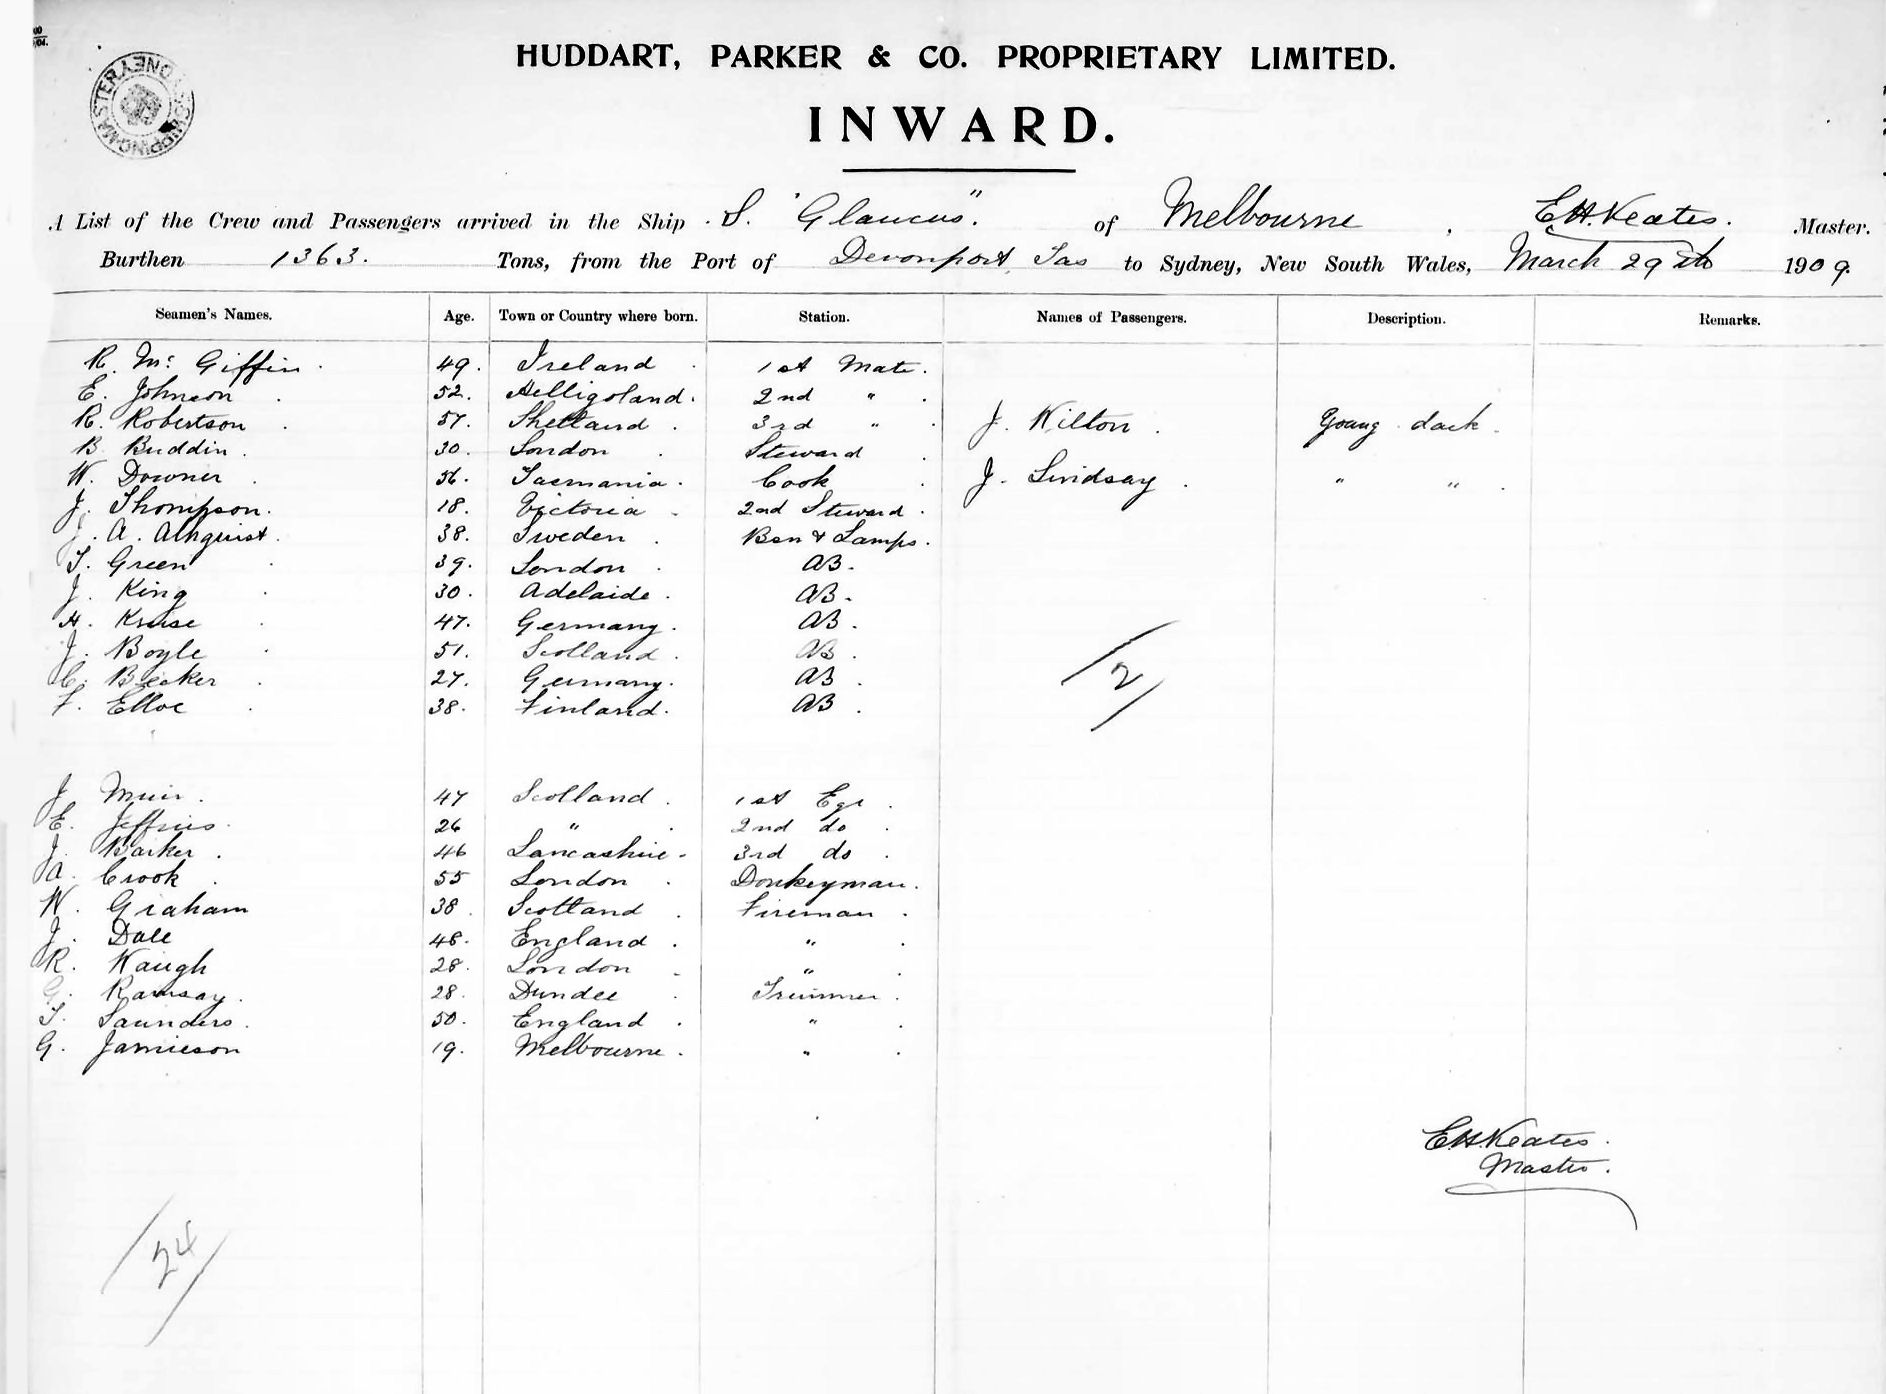 HUDDART, PARKER & CO. PROPRIETARY LIMITED.
INWARD.
SHIPPING MASTER SYDNEY
A List of the Crew and Passengers arrived in the Ship S. "Glaucus". of Melbourne, E.H. Keates. Master.
Burthen 1363. Tons, from the Port of Devonport, Tas to Sydney, New South Wales, March 29th 1909.
Seamen's Names. Age. Town or Country where born. Station. Names of Passengers. Description. Remarks.
R. Mc Giffin. 49. Ireland 1st Mate.
E. Johnson 52. Helligoland. 2nd "
R. Robertson 57. Shetland. 3rd " J. Wilton. Young dack.
B. Buddin. 30. London Steward
W. Downer 56. Tasmania. Cook J. Lindsay. " "
J. Thompson. 18. Victoria 2nd Steward.
J. A. Almquist. 38. Sweden Bsn & Lamps.
T. Green 39. London AB.
J. King 30. Adelaide. AB.
H. Kruse 47. Germany. AB.
J. Boyle 51. Scotland AB.
C. Becker 27. Germany. AB.
F. 38. Finland. AB.
2
J Muir. 47 Scotland 1st Egr
E. Jeffries. 26 " 2nd do
J. Barker. 46 Lancashire 3rd do
A. Crook 55 London Donkeyman.
W. Graham 38 Scotland Fireman
J. Dale 48. England "
R. Waugh 28. London "
G. Ramsay. 28. Dundee Trimmer
T. Saunders. 50. England "
G. Jamieson 19. Melbourne. "
E.H. Keates.
Master.
24